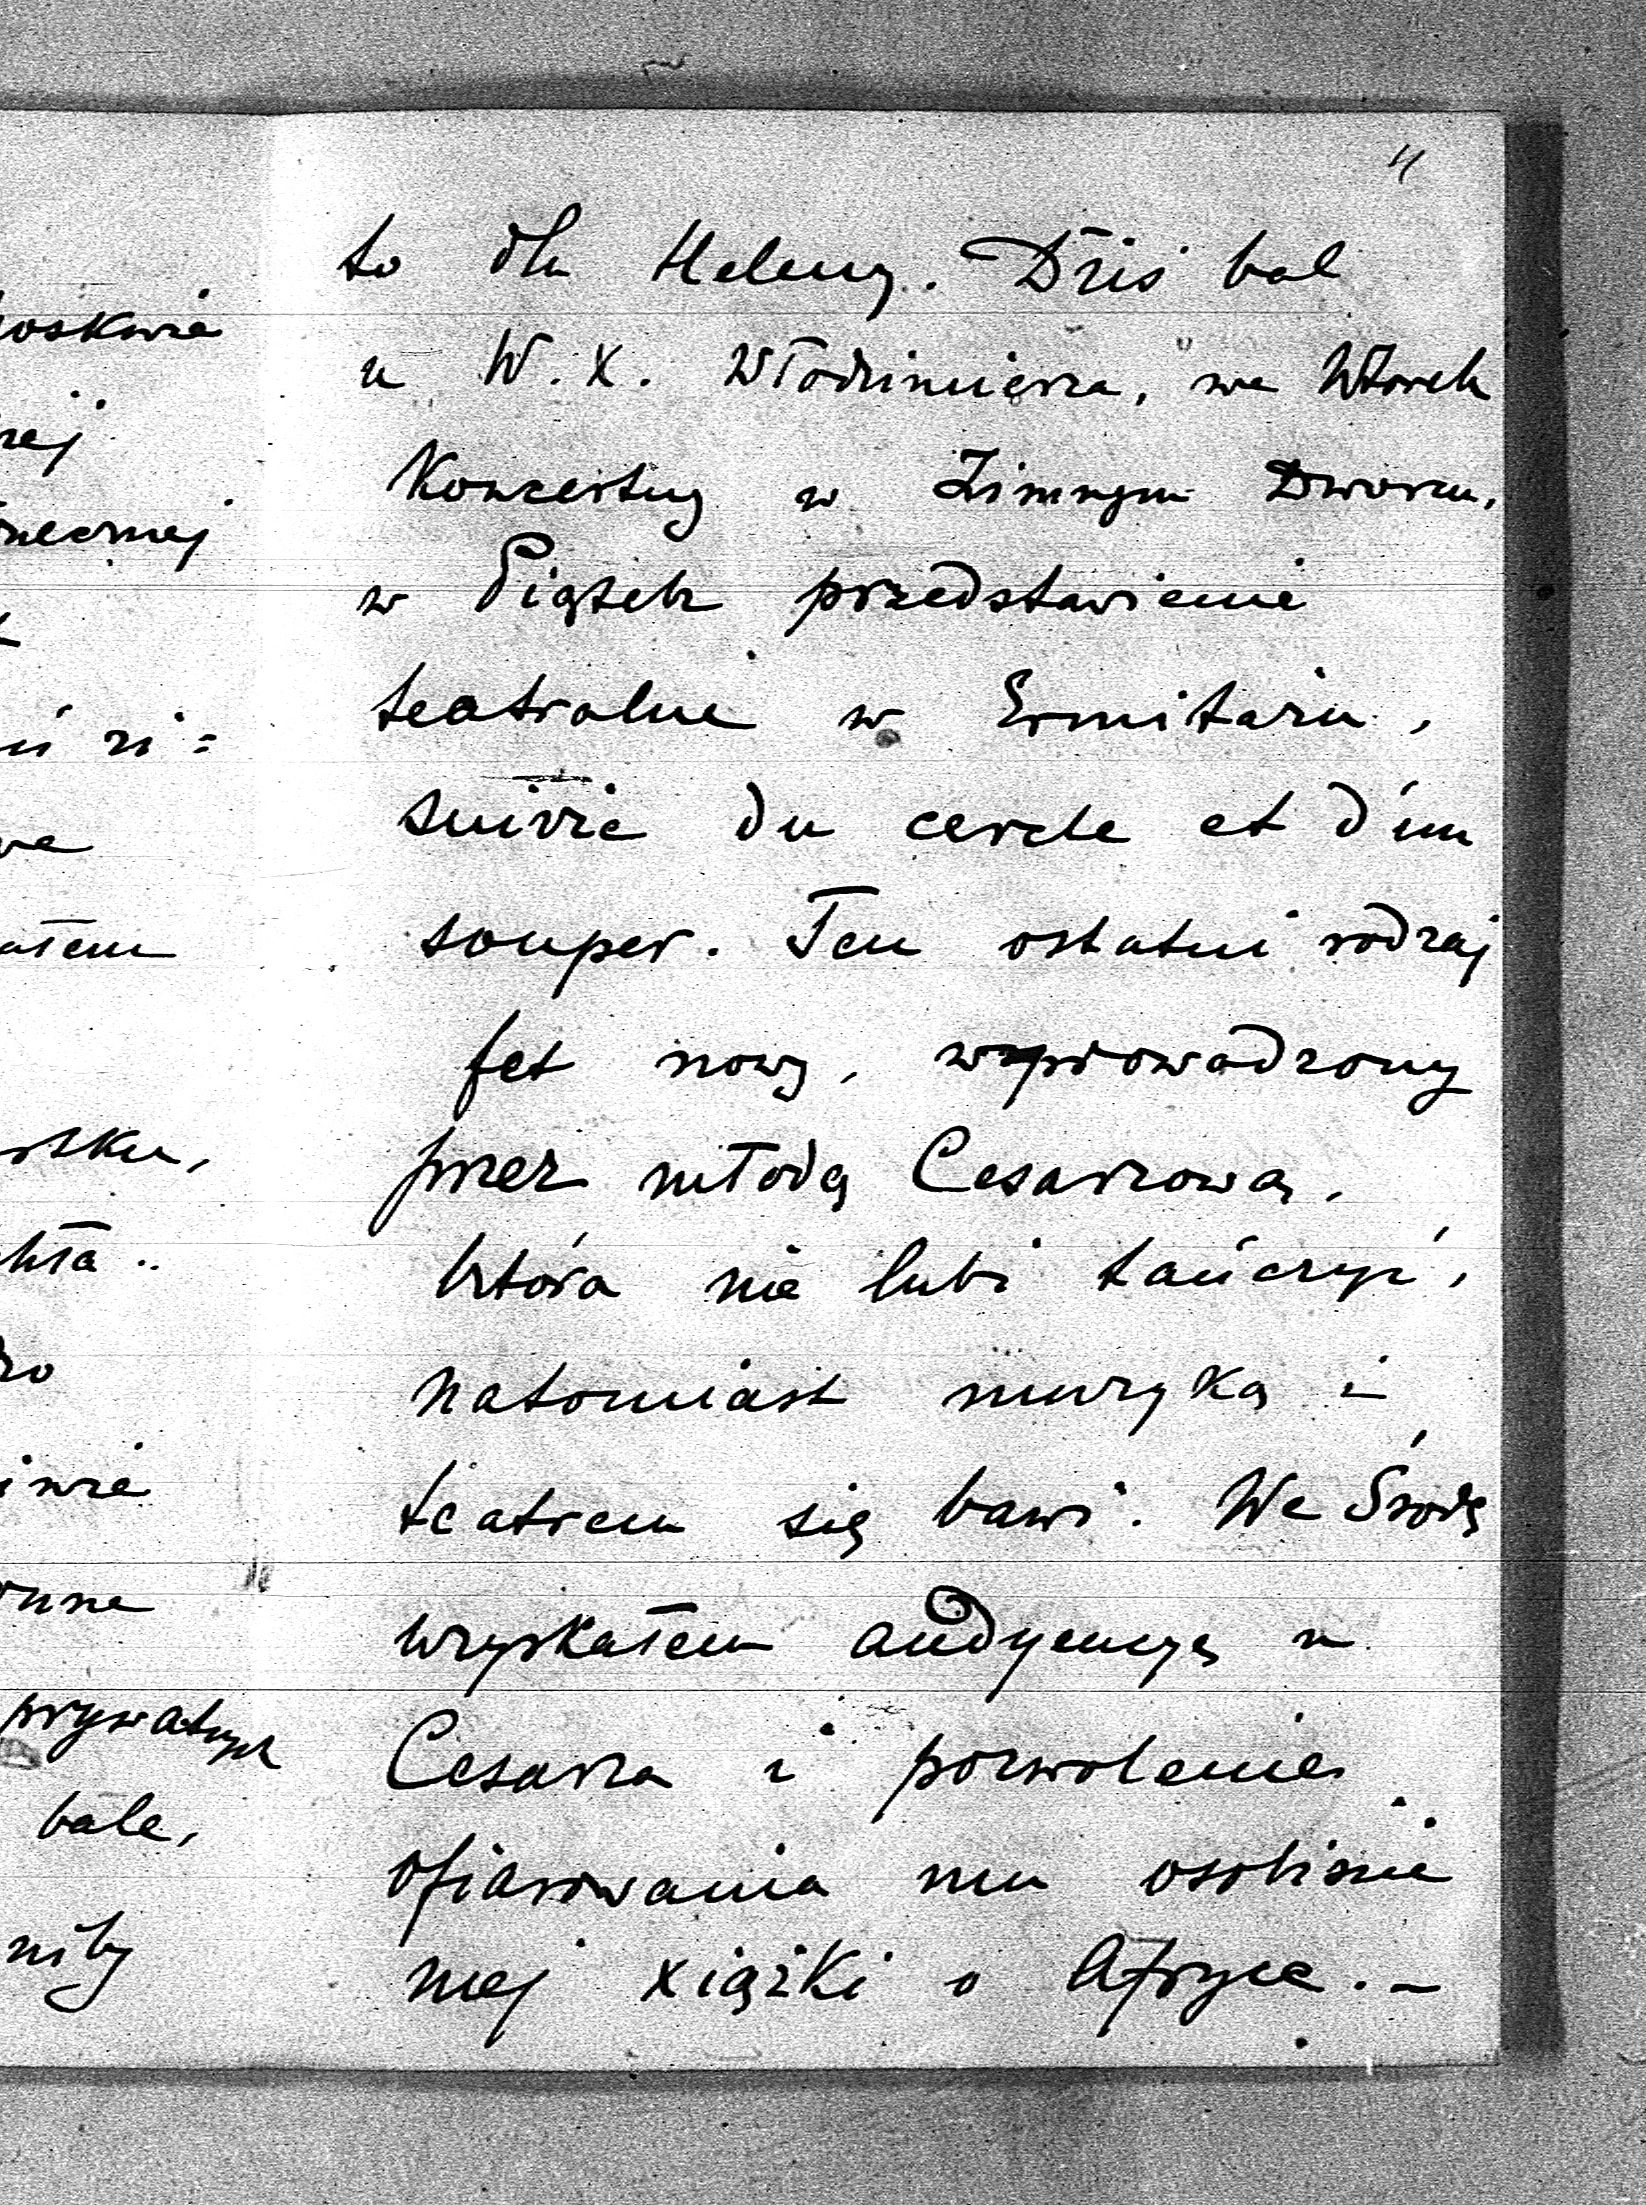 4
to dla Heleny. Dziś bal
u W. X. Włodzimierza, we Wtorek
Koncertny w Zimnym Dworcu,
w Piątek przedstawienie
teatralne w Ermitażu,
suivie du cercle et d'un
souper. Ten ostatni rodzaj
fet nowy, wprowadzony
przez młodą Cesarzową,
która nie lubi tańczyć,
natomiast muzyką i
teatrem się bawi. We Środę
wzyskałem audyencyę u
Cesarza i pozwolenie
ofiarowania mu osobiście
mej xiążki o Afryce. –
oskwie
rej
necznej
ri =
ałem
prywatnych
bale,
niby